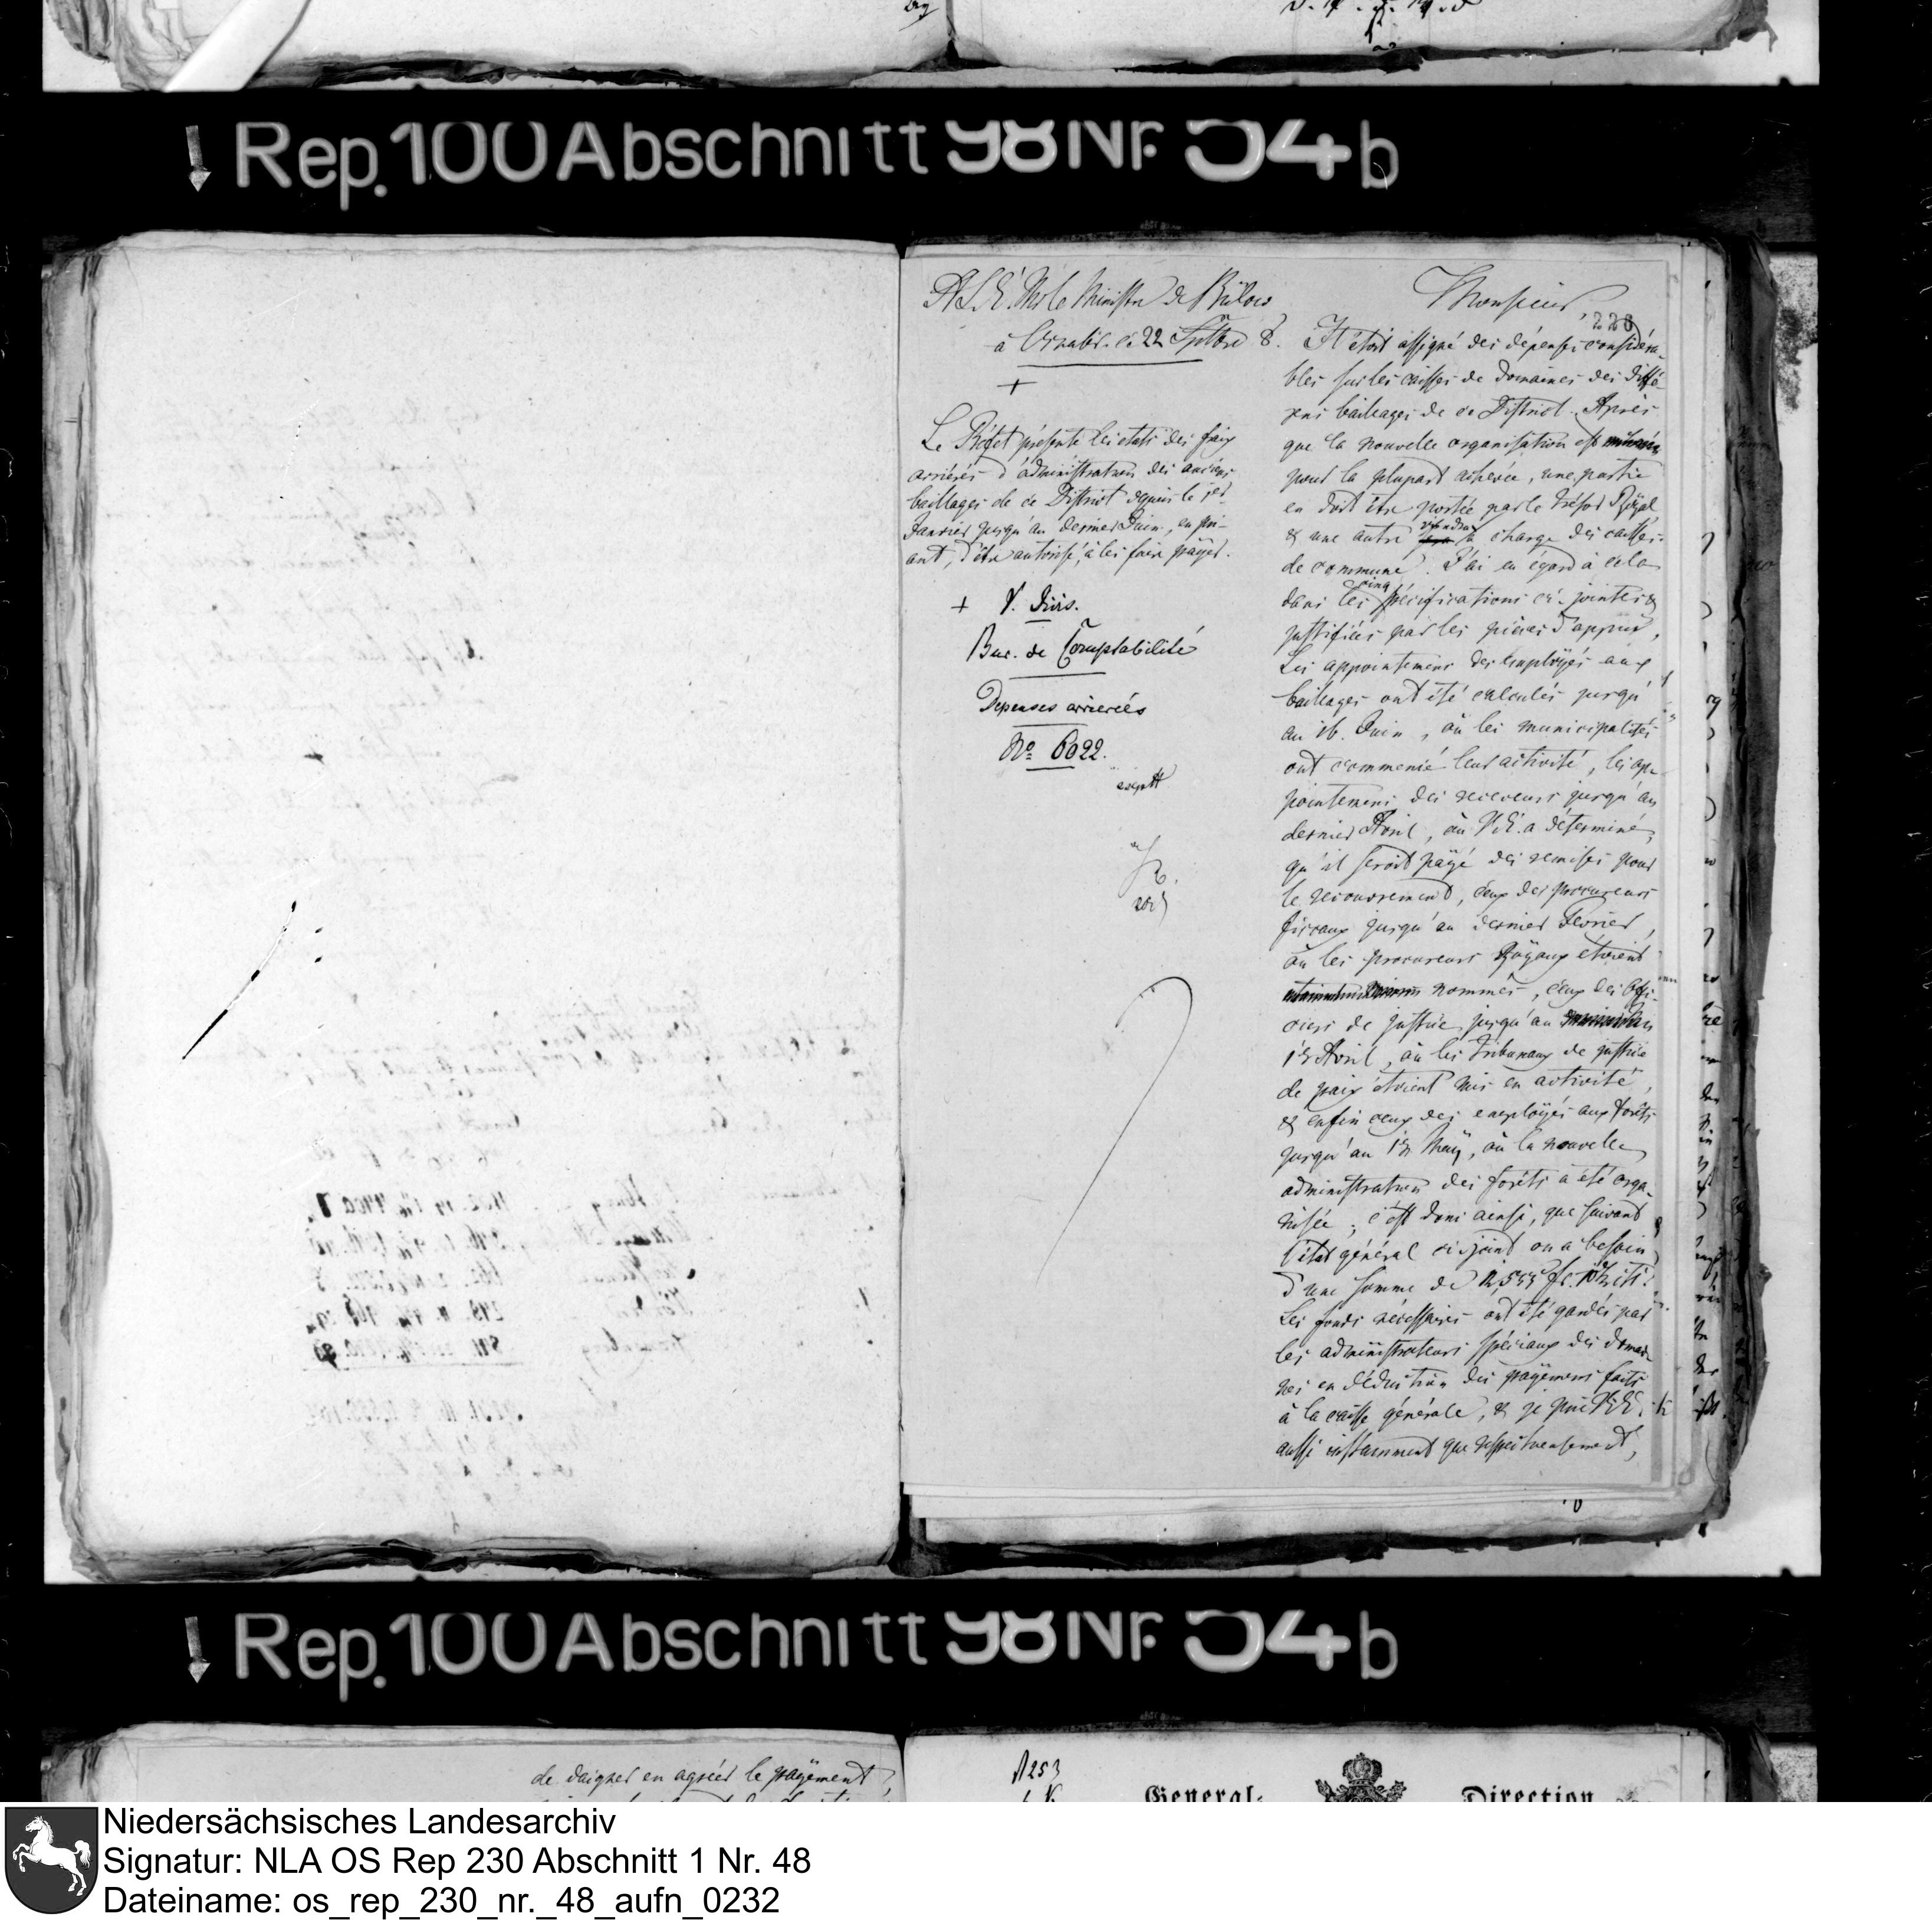 Rep. 100 Abschnitt 98 Nr. 54 b
A S. E. Mr le Ministre de Bülow
à Osnabr. le 22 Septbre 8.
+
Le Préfet présente les etats des fraix
arriérés d'administration des anciens
bailliages de ce District depuis le 1er
Janvier jusqu'au dernier Juin, en pri-
ant, d'être autorisé, à les faire payer.
+ V. Divis.
Bur. de Comptabilité
Depenses arrierées
No. 6022.
Monsieur,
228
Il étoit assigné des dépenses considéra-
bles sur les caisses de Domaines des diffé-
rens bailliages de ce District. Après
que la nouvelle organisation est
pour la plupart achevée, une partie
en doit être portée par le trésor Royal
& une autre à charge des caisses
de commune. J'ai eu égard à cela
dans les cinq spécifications ci-jointes &
justifiées par les pièces d'appui,
Les appointemens des employés aux
bailliages ont été calculés jusqu'
au 16. Juin, où les municipalités
ont commencé leur activité, les ap-
pointemens des receveurs jusqu'au
dernier Avril, où V. E. a déterminé,
qu'il seroit payé des remises pour
le recouvrement, ceux des procureurs
fiscaux jusqu'au dernier Fevrier,
où les procureurs Royaux étoient
nommés, ceux des offi-
ciers de justice jusqu'au
1er Avril, où les Tribunaux de justice
de paix étoient mis en activité,
& enfin ceux des employés aux forêts
jusqu'au 1er May, où la nouvelle
administration des forêts a été orga-
nisée; c'est donc ainsi, que suivant
l'état général ci-joint on a besoin
d'une somme de
Les fonds nécessaires ont été gardés par
les administrateurs spéciaux des domai-
nes en déduction des payemens faits
à la caisse générale, & je prie V. E.
aussi instamment que respectueusement,
Rep. 100 Abschnitt 98 Nr. 54 b
de daigner en agréer le payement
General-Direction
Niedersächsisches Landesarchiv
Signatur: NLA OS Rep 230 Abschnitt 1 Nr. 48
Dateiname: os_rep_230_nr._48_aufn_0232